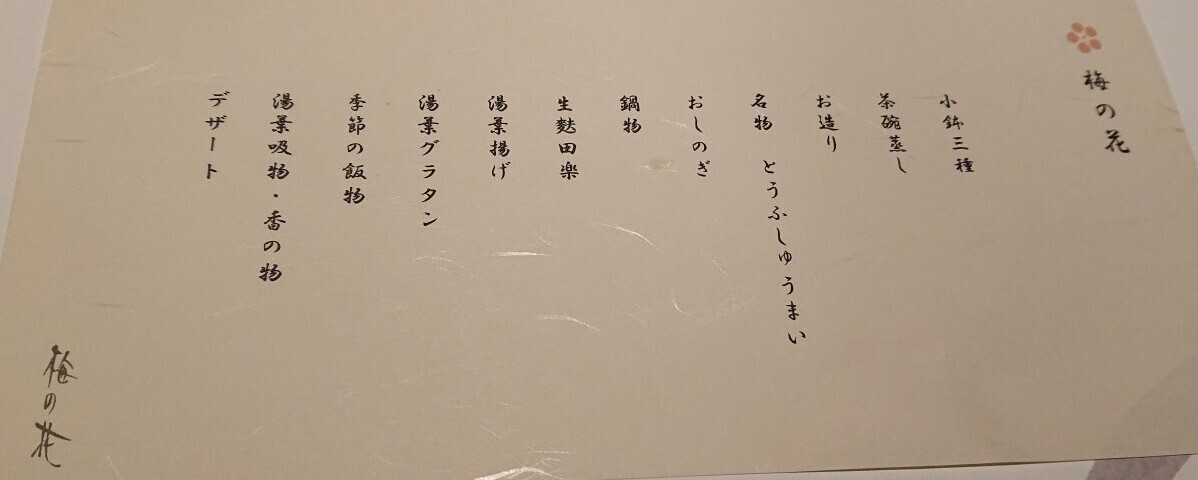 梅の花
小鉢三種
茶碗蒸し
お造り
名物　とうふしゅうまい
おしのぎ
鍋物
生麩田楽
湯葉揚げ
湯葉グラタン
季節の飯物
湯葉吸物・香の物
デザート
梅の花